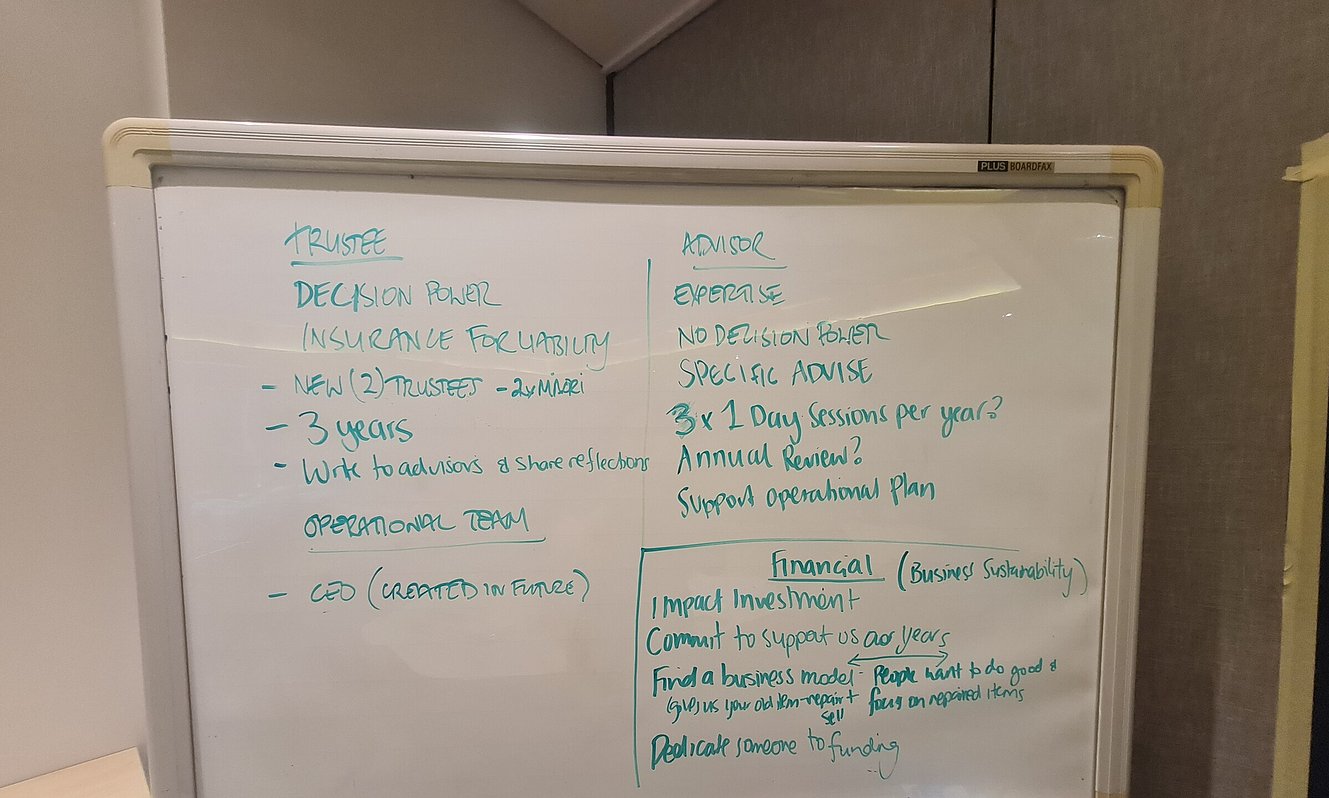 PLUS BOARDFAX
TRUSTEE
DECISION POWER
INSURANCE FOR LIABILITY
- NEW (2) TRUSTEES - 2x
- 3 years
- Write to advisors & share reflections
OPERATIONAL TEAM
- CEO (CREATED IN FUTURE)
ADVISOR
EXPERTISE
NO DECISION POWER
SPECIFIC ADVISE
3 x 1 Day Sessions per year?
Annual Review?
Support operational Plan
Financial (Business Sustainability)
Impact Investment
Commit to support us years
Find a business model - People want to do good &
(give) us your old item - repair + focus on repaired items
sell
Dedicate someone to funding